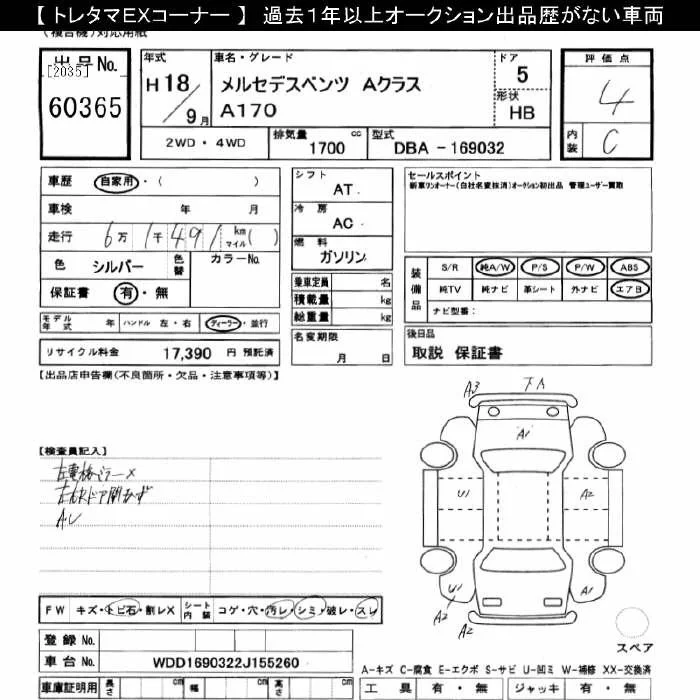 【 トレタマEXコーナー 】 過去1年以上オークション出品歴がない車両
(複合機)対応用紙
出品No.
[2035]
60365
年式
H 18 / 9 月
車名・グレード
メルセデスベンツ Aクラス
A170
ドア
5
形状
HB
評価点
4
内装
C
2WD・4WD
排気量
1700 cc
型式
DBA - 169032
車歴 自家用・( )
車検 年 月
走行 6万 1千 491 km マイル( )
色 シルバー 色替 カラーNo.
保証書 有・無
シフト
AT.
冷房
AC.
燃料
ガソリン
乗車定員 名
積載量 kg
総重量 kg
セールスポイント
新車ワンオーナー(自社名変抹消)オークション初出品 管理ユーザー買取
装備品
S/R 純A/W P/S P/W ABS
純TV 純ナビ 革シート 外ナビ エアB
ナビ型番:
モデル年式 年 ハンドル 左・右 ディーラー・並行
リサイクル料金 17,390 円 預託済
名変期限
月 日
後日品
取説 保証書
【出品店申告欄(不良箇所・欠品・注意事項等)】
【検査員記入】
A3
A1
U1
A2
U1
A2
A2
A2
FW キズ・トビ石・割レX シート内装 コゲ・穴・汚レ・シミ・破レ・スレ
登録 No.
車台 No. WDD1690322J155260
車庫証明用 長さ cm 幅 cm 高さ cm
スペア
A-キズ C-腐食 E-エクボ S-サビ U-凹ミ W-補修 XX-交換済
工具 有・無 ジャッキ 有・無